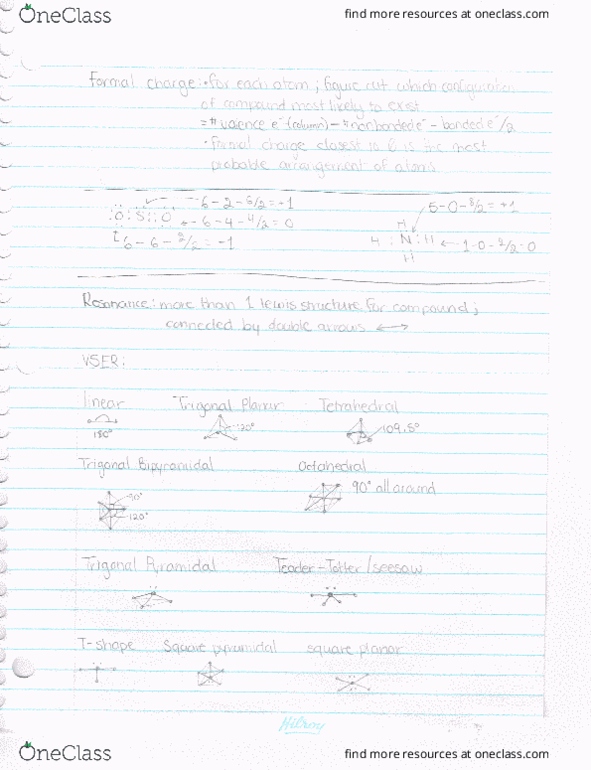 OneClass
find more resources at oneclass.com
Formal charge: • for each atom; figure out which configuration
of compound most likely to exist
= # valence e⁻ (column) - # nonbonded e⁻ - bonded e⁻/2
• formal charge closest to 0 is the most
probable arrangement of atoms
6-2-6/2=+1
5-0-8/2=+1
:O:S::O
6-4-4/2=0
H
H:N:H
1-0-2/2=0
H
6-6-2/2=-1
Resonance: more than 1 lewis structure for compound;
connected by double arrows ↔
VSER:
linear Trigonal Planar Tetrahedral
180° 120° 109.5°
Trigonal Bipyramidal Octahedral
90° 90° all around
120°
Trigonal Pyramidal Teader-Totter/seesaw
T-shape Square pyramidal square planar
Hilroy
OneClass
find more resources at oneclass.com